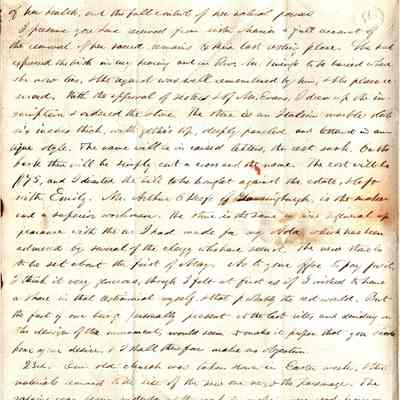 of her health, and the full control of her natural powers
I presume you have received from sister Maria a full account of
the removal of her sacred remains to their last resting place. She had
expressed the wish in my hearing and in Rev. Mr. Twing's to be buried where
she now lies, & the request was well remembered by him, & the place re
served. With the approval of sisters & of Mr. Evans, I drew up the in-
scription & ordered the stone. The stone is an Italian marble slab
six inches thick, with gothic top, deeply panelled, and lettered in an
tique style. The name will be in raised letters, the rest sunk. On the
back there will be simply cut a cross and the name. The cost will be
$75, and I directed the bill to be brought against the estate, & left
with Emily. Mr. Arthur O'Keefe of Lansingburgh, is the maker
and a superior workman. The stone is the same in size & general ap
pearance with the one I had made for my Nola which has been
admired by several of the clergy who have seen it. The new stone is
to be set about the first of May. As to your offer to pay for it,
I think it very generous, though I felt at first as if I wished to have
a share in that testimonial myself, & that probably the rest would. But
the fact of our being personally present at the last rites, and deciding on
the design of the monument, would seem to make it proper that you should
have your desire, & I shall therefore make no objection
23rd. Our old church was taken down in Easter week, & the
materials removed to the site of the new one near the parsonage. The